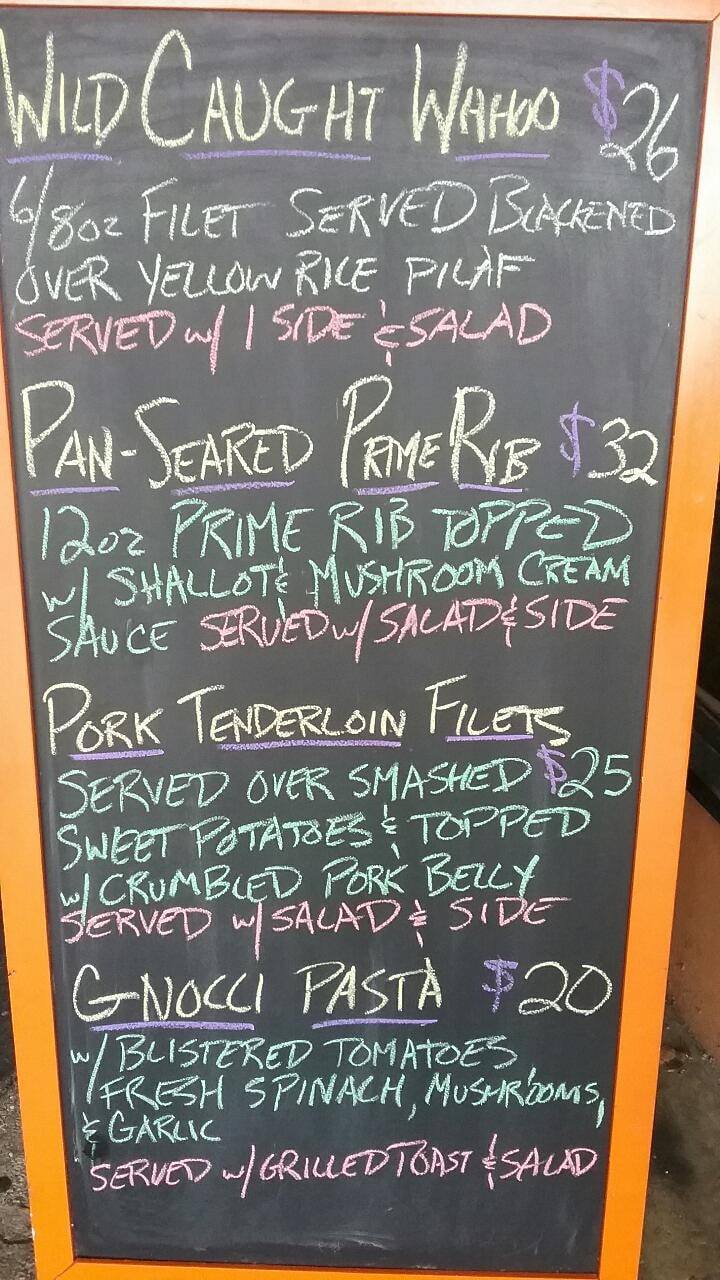 WILD CAUGHT WAHOO $26
6/8oz FILET SERVED BLACKENED
OVER YELLOW RICE PILAF
SERVED w/ 1 SIDE & SALAD
PAN-SEARED PRIME RIB $32
12oz PRIME RIB TOPPED
w/ SHALLOT & MUSHROOM CREAM
SAUCE SERVED w/ SALAD & SIDE
PORK TENDERLOIN FILETS
SERVED OVER SMASHED $25
SWEET POTATOES & TOPPED
w/ CRUMBLED PORK BELLY
SERVED w/ SALAD & SIDE
GNOCCI PASTA $20
w/ BLISTERED TOMATOES
FRESH SPINACH, MUSHROOMS,
& GARLIC
SERVED w/ GRILLED TOAST & SALAD